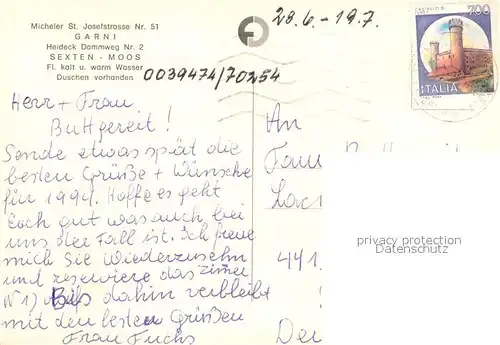 Micheler St. Josefstrasse Nr. 51
GARNI
Heideck Dammweg Nr. 2
SEXTEN - MOOS
Fl. kalt u. warm Wasser
Duschen vorhanden
28.6. - 19.7.
0039474/70254
700
ITALIA
Herr + Frau
Buttgereit!
Sende etwas spät die
besten Grüße + Wünsche
für 1994. Hoffe es geht
Euch gut was auch bei
uns der Fall ist. Ich freue
mich Sie Wiederzusehn
und reserviere das Zimer
N 1) Bis dahin verbleibt
mit den besten Grüßen
Frau Fuchs
An
Fam
441
privacy protection
Datenschutz